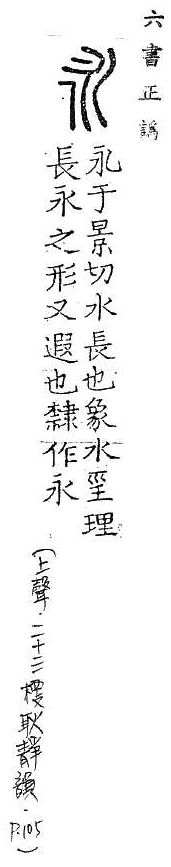 六書正譌
永于景切水長也象水巠理
長永之形又遐也隸作永
(上聲.二十二梗耿靜韻.P.105)